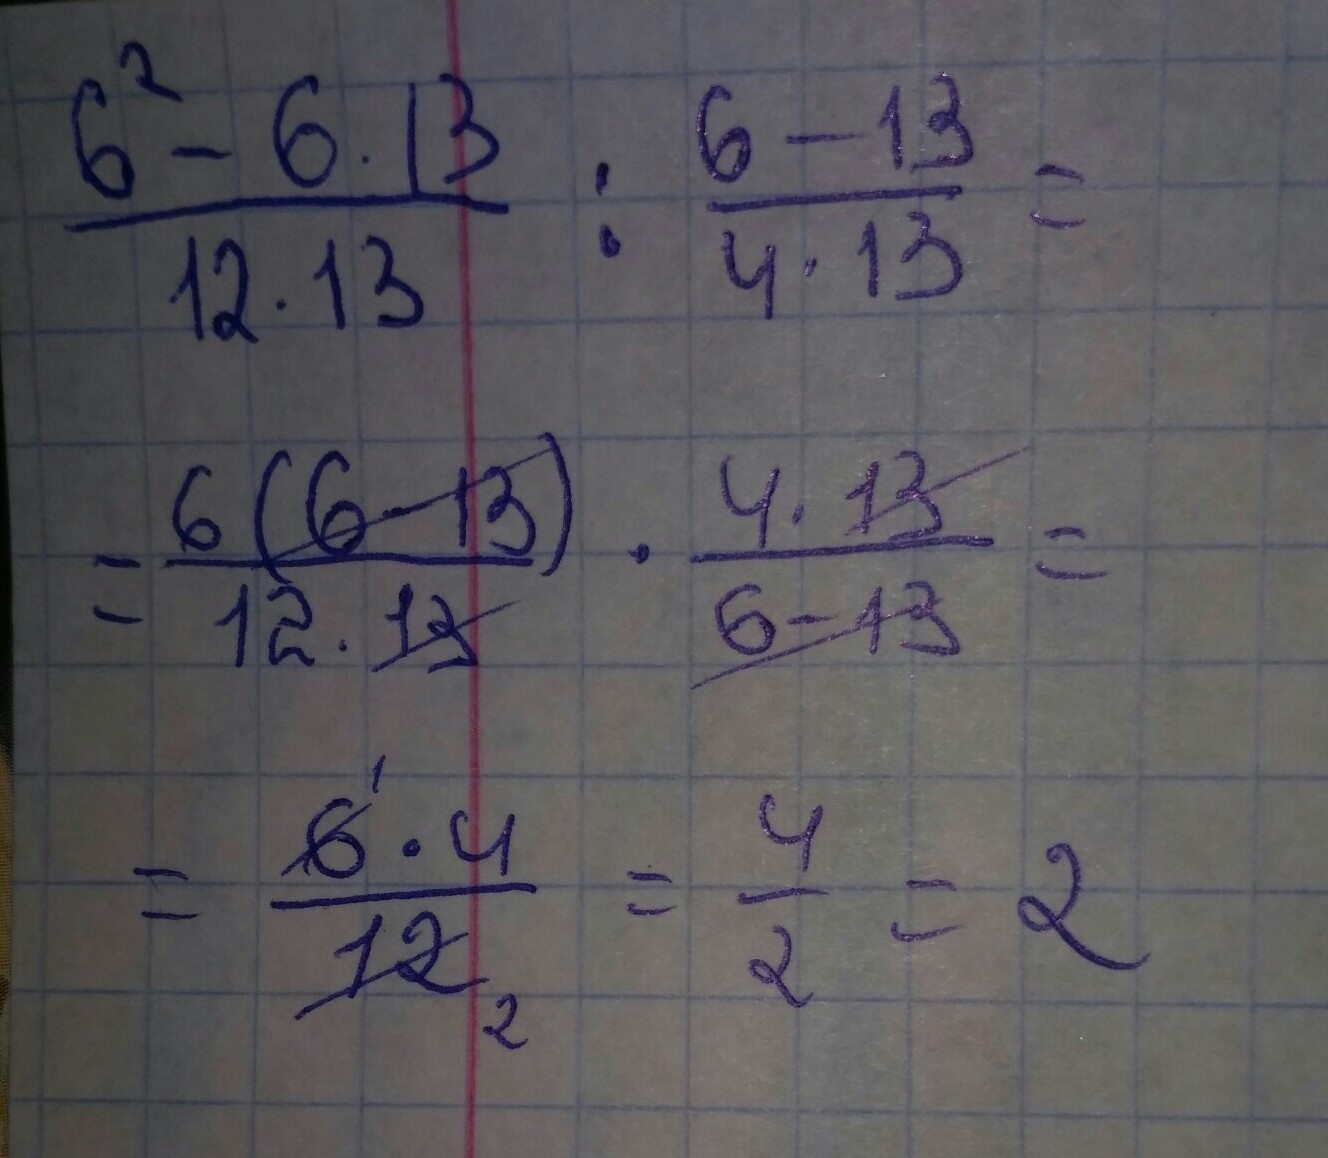 6² - 6·13 / 12·13 : 6 - 13 / 4·13 =
= 6(6 - 13) / 12·13 · 4·13 / 6 - 13 =
= 6¹·4 / 12₂ = 4 / 2 = 2